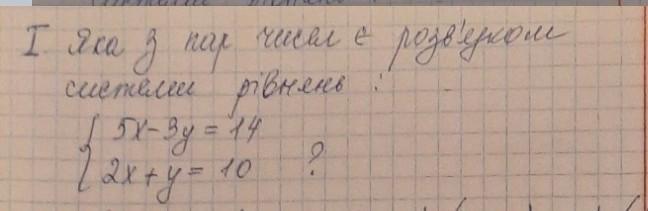 I. Яка з пар чисел є розв'язком
системи рівнянь:
5x-3y=14
2x+y=10 ?